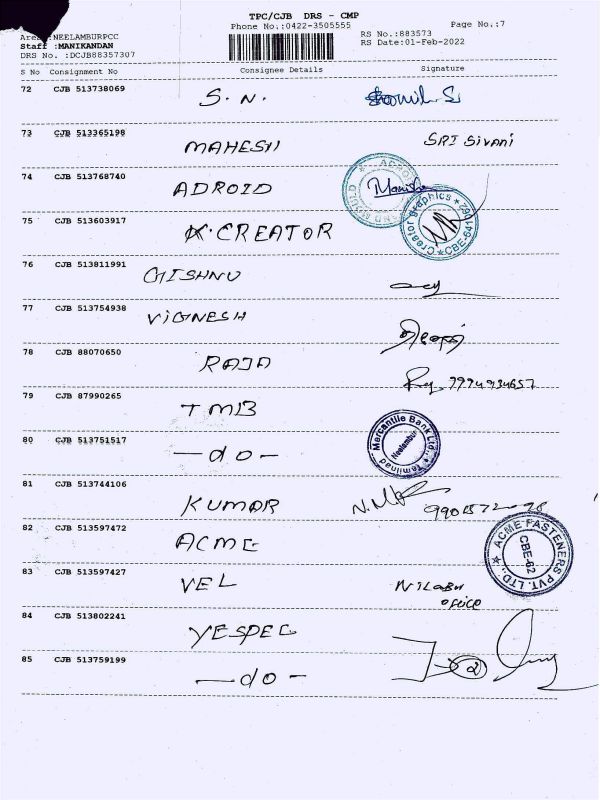 TPC/CJB DRS - CMP
Phone No.:0422-3505555
Page No.:7
Area :NEELAMBURPCC
Staff :MANIKANDAN
DRS No. :DCJB88357307
RS No.:883573
RS Date:01-Feb-2022
S No Consignment No Consignee Details Signature
72 CJB 513738069 S.N.
73 CJB 513365198 MAHESH SRI Sivani
74 CJB 513768740 ADROID
75 CJB 513603917 K.CREATOR Creator Graphics CBE-641 062
76 CJB 513811991 GISHNU
77 CJB 513754938 VIGNESH
78 CJB 88070650 RAJA
79 CJB 87990265 TMB
80 CJB 513751517 —do— Tamilnad Mercantile Bank Ltd., Neelambur
81 CJB 513744106 KUMAR
82 CJB 513597472 ACME ACME FASTENERS PVT. LTD., CBE-62
83 CJB 513597427 VEL
84 CJB 513802241 YESPEC
85 CJB 513759199 —do—